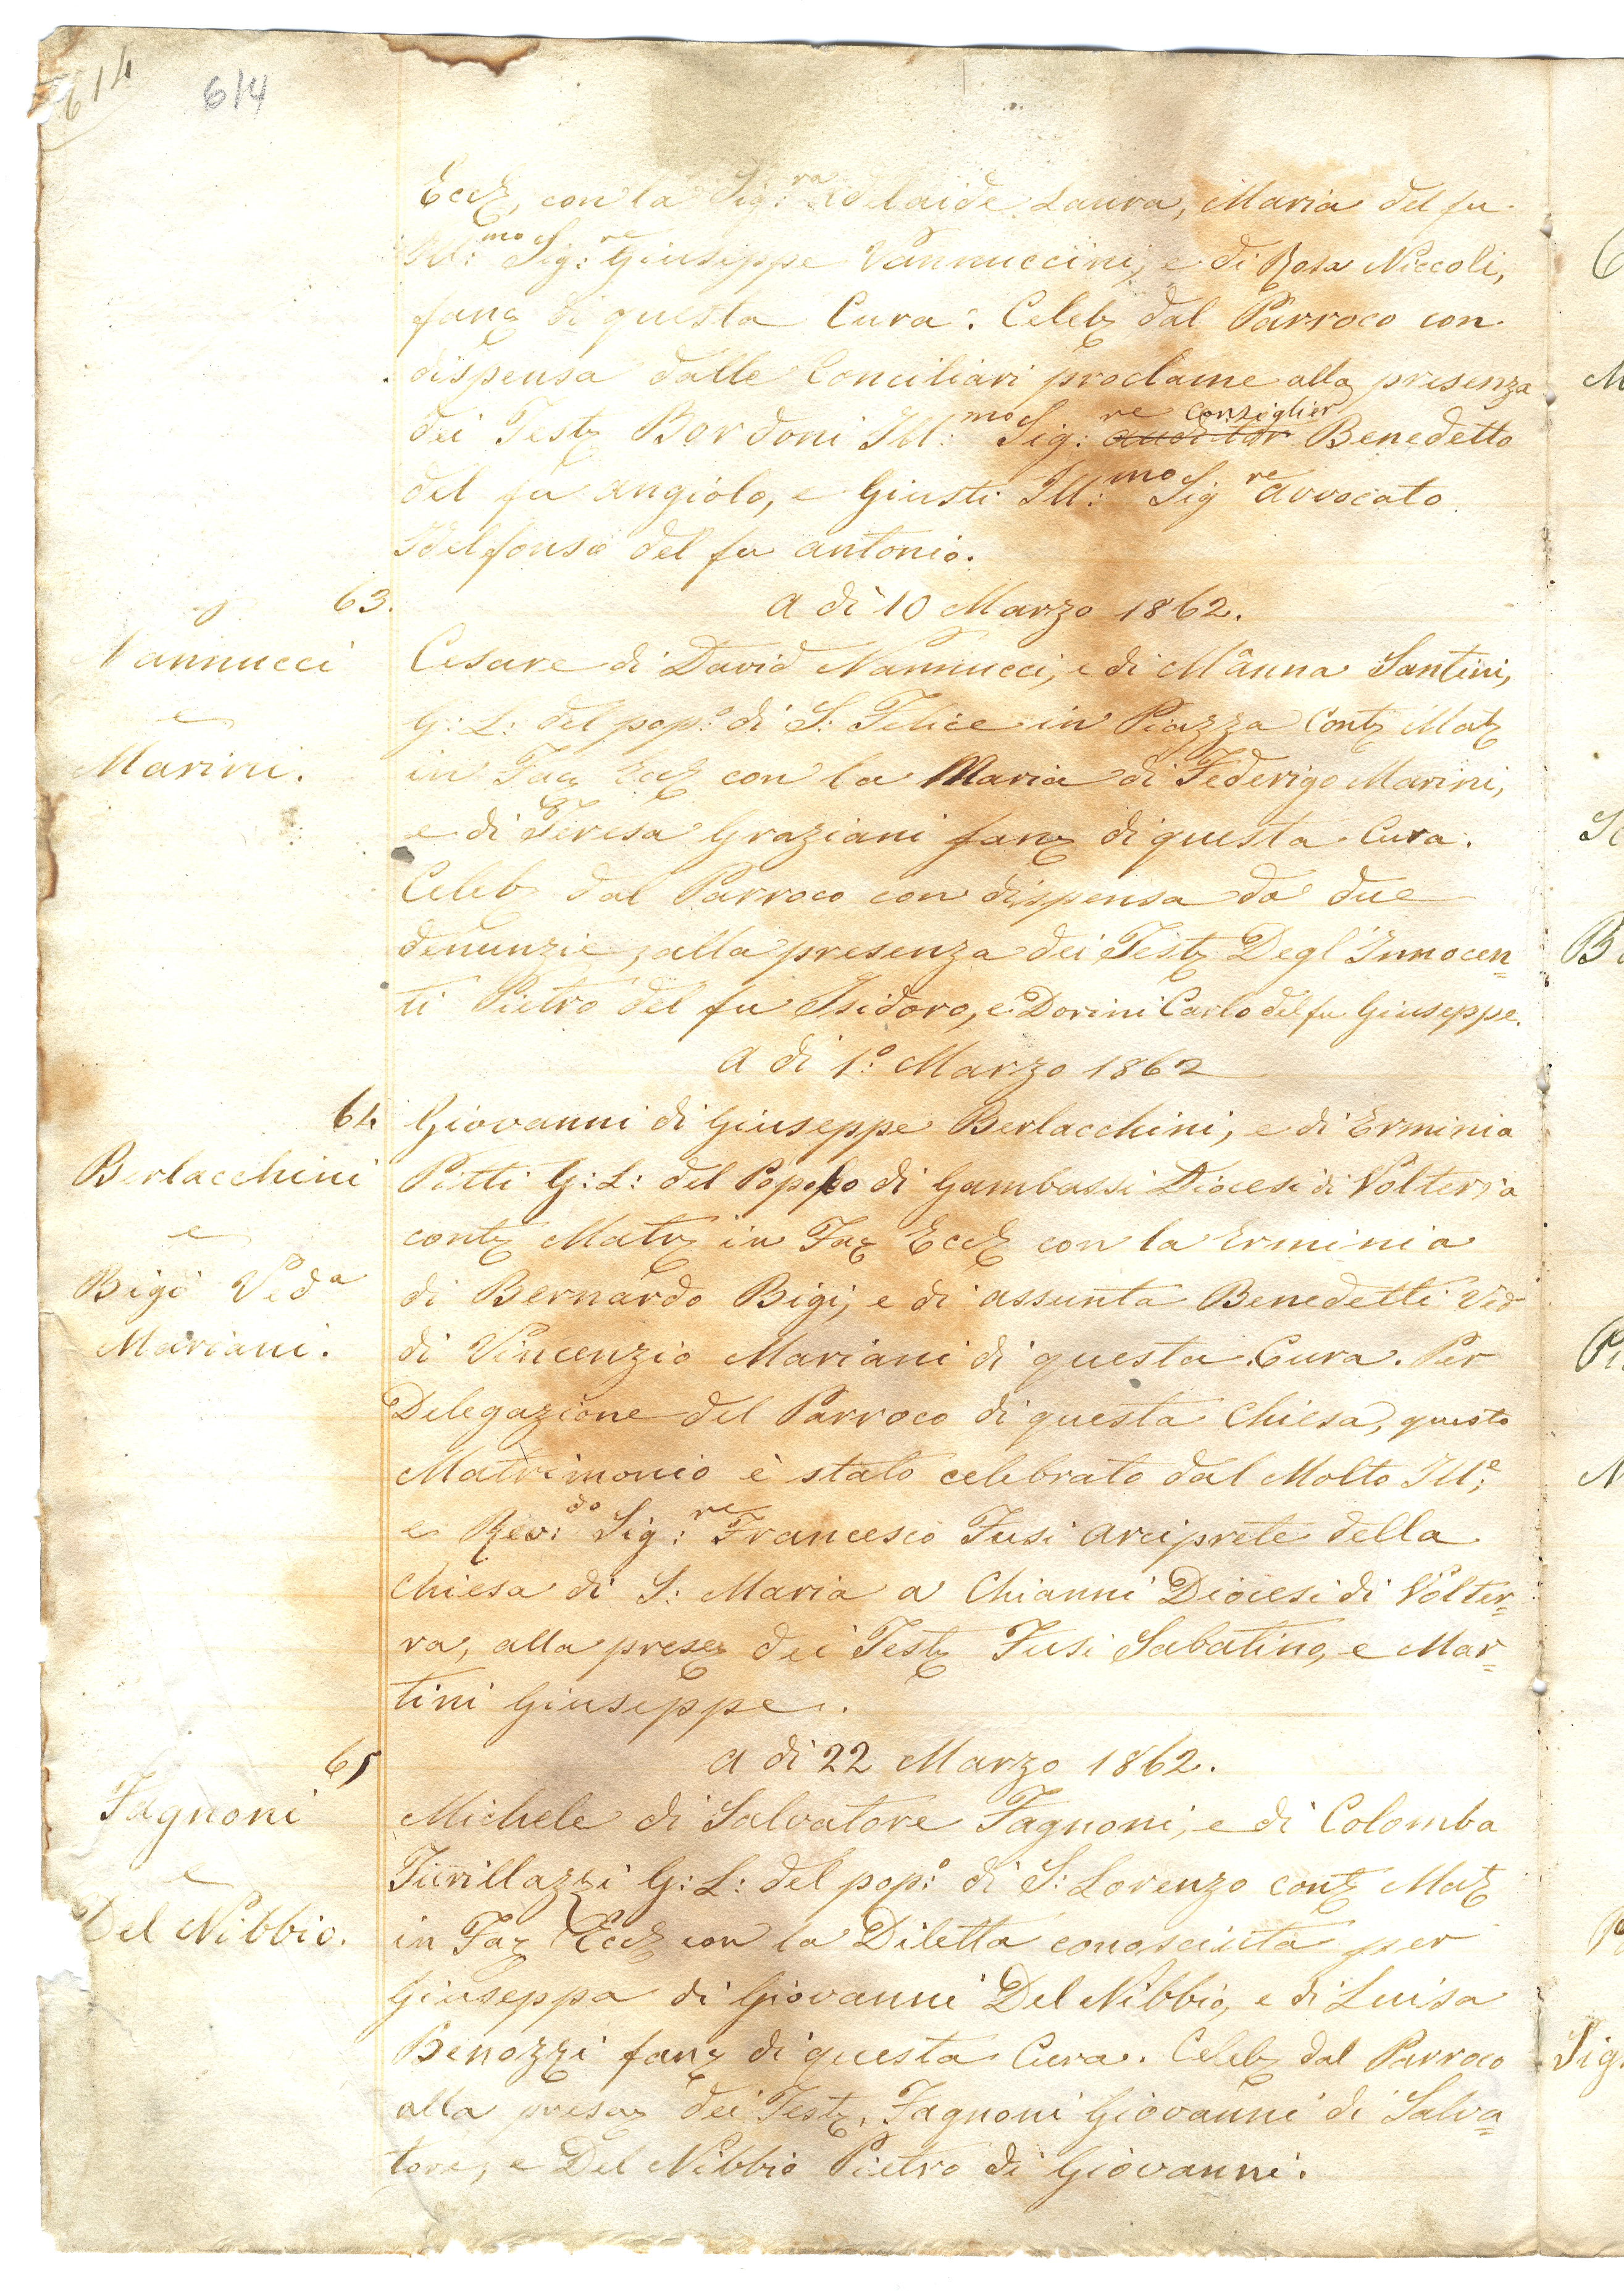 614
614
Eccl, con la Sig:ra Adelaide Laura, Maria del fu
Ill:mo Sig:re Giuseppe Vannuccini, e di Rosa Niccoli,
fanc di questa Cura. Celeb dal Parroco con
dispensa dalle Conciliari proclame alla presenza
consiglier
dei Test Bordoni Ill:mo Sig:re auditor Benedetto
del fu Angiolo, e Giusti Ill:mo Sig re Avvocato
Idelfonso del fu Antonio.
63. A dì 10 Marzo 1862.
Nannucci
e
Marini.
Cesare di David Nannucci, e di Mânna Santini,
G: L: del pop:o di S: Felice in Piazza Cont Mat
in Fac Eccl con la Maria di Federigo Marini,
e di Teresa Graziani fanc di questa Cura.
Celeb dal Parroco con dispensa da due
denunzie, alla presenza dei Test Degl'Innocen=
ti Pietro del fu Isidoro, e Dorini Carlo del fu Giuseppe.
A dì 1:o Marzo 1862
64
Berlacchini
e
Bigi Veda
Mariani.
Giovanni di Giuseppe Berlacchini, e di Erminia
Pitti G: L: del Popolo di Gambassi Diocesi di Volterra
cont Matr in Fac Eccl con la Erminia
di Bernardo Bigi, e di Assunta Benedetti Ved
di Vincenzio Mariani di questa Cura. Per
Delegazione del Parroco di questa Chiesa, questo
Matrimonio è stato celebrato dal Molto Ill:e
e Rev:do Sig:re Francesco Fusi Arciprete della
Chiesa di S: Maria a Chianni Diocesi di Volter=
ra, alla prese dei Test Fusi Sabatino, e Mar=
tini Giuseppe.
65 A dì 22 Marzo 1862.
Fagnoni
e
Del Nibbio.
Michele di Salvatore Fagnoni, e di Colomba
G: L: del pop:o di S: Lorenzo cont Mat
in Fac Eccl con la Diletta conosciuta per
Giuseppa di Giovanni Del Nibbio, e di Luisa
Benozzi fanc di questa Cura. Celeb dal Parroco
alla presenz dei Test, Fagnoni Giovanni di Salva=
tore, e Del Nibbio Pietro di Giovanni.